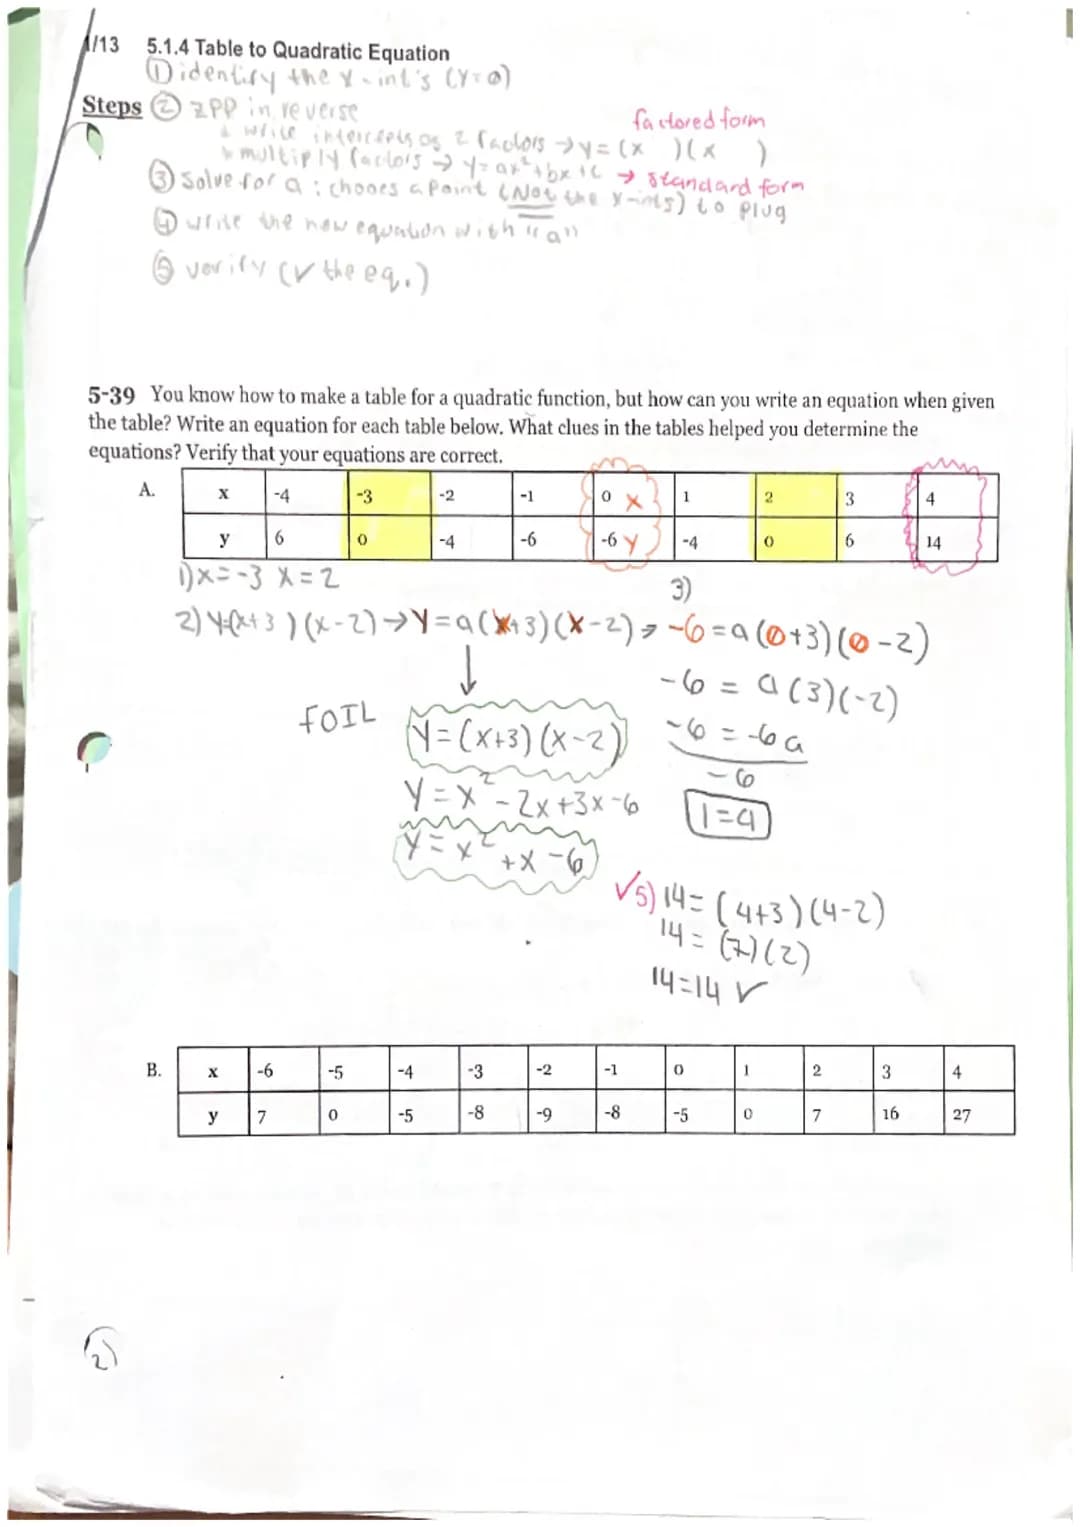 1/13 5.1.4 Table to Quadratic Equation
① identify the x-int's (y=0)
Steps ② ZPP in reverse
factored form
write intercepts as 2 factors → y=(x )(x )
multiply factors → y=ax²+bx+c → standard form
③ Solve for a: chooes a point (Not the x-ints) to plug
④ write the new equation with "a"
⑤ verify (✓ the eq.)
5-39 You know how to make a table for a quadratic function, but how can you write an equation when given
the table? Write an equation for each table below. What clues in the tables helped you determine the
equations? Verify that your equations are correct.
A. x -4 -3 -2 -1 0 x 1 2 3 4
y 6 0 -4 -6 -6 y -4 0 6 14
1) x=-3 x=2
3)
2) y=(x+3)(x-2) → y=a(x+3)(x-2) → -6=a(0+3)(0-2)
↓ -6 = a(3)(-2)
FOIL y=(x+3)(x-2) -6 = -6a
-6
y=x²-2x+3x-6 1=a
y=x²+x-6
✓5) 14=(4+3)(4-2)
14=(7)(2)
14=14 ✓
B. x -6 -5 -4 -3 -2 -1 0 1 2 3 4
y 7 0 -5 -8 -9 -8 -5 0 7 16 27
2